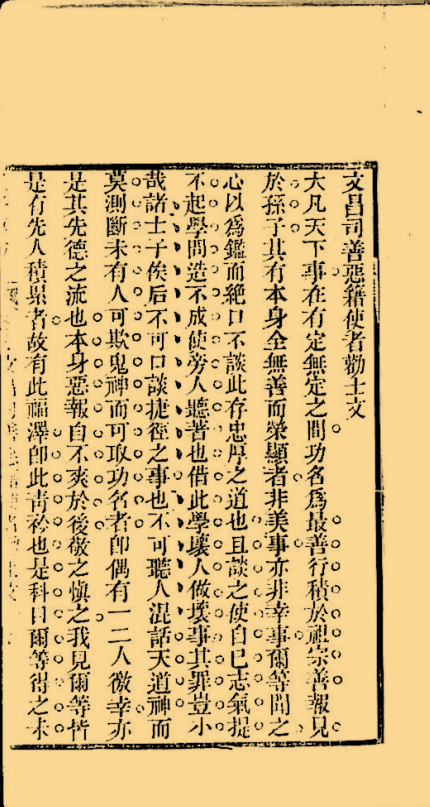 文昌司善惡籍使者勸士文
大凡天下事在有定無定之間功名爲最善行積於祖宗善報見
於孫子其有本身全無善而榮顯者非美事亦非幸事爾等聞之
心以爲鑑而絶口不談此存忠厚之道也且談之使自己志氣提
不起學問造不成使旁人聽者也借此學壞人做壞事其罪豈小
哉諸士子俟后不可口談捷徑之事也不可聽人混話天道神而
莫測斷未有人可欺鬼神而可取功名者卽偶有一二人徼幸亦
是其先德之流也本身惡報自不爽於後敬之愼之我見爾等皆
是有先人積累者故有此福澤卽此靑衿也是科目爾等得之未